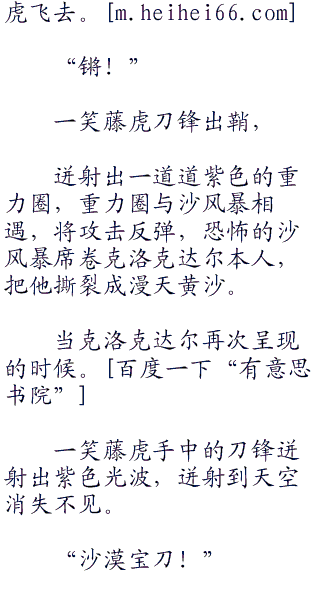 虎飞去。[m.heihei66.com]
“锵！”
一笑藤虎刀锋出鞘，
迸射出一道道紫色的重
力圈，重力圈与沙风暴相
遇，将攻击反弹，恐怖的沙
风暴席卷克洛克达尔本人，
把他撕裂成漫天黄沙。
当克洛克达尔再次呈现
的时候。[百度一下“有意思
书院”]
一笑藤虎手中的刀锋迸
射出紫色光波，迸射到天空
消失不见。
“沙漠宝刀！”